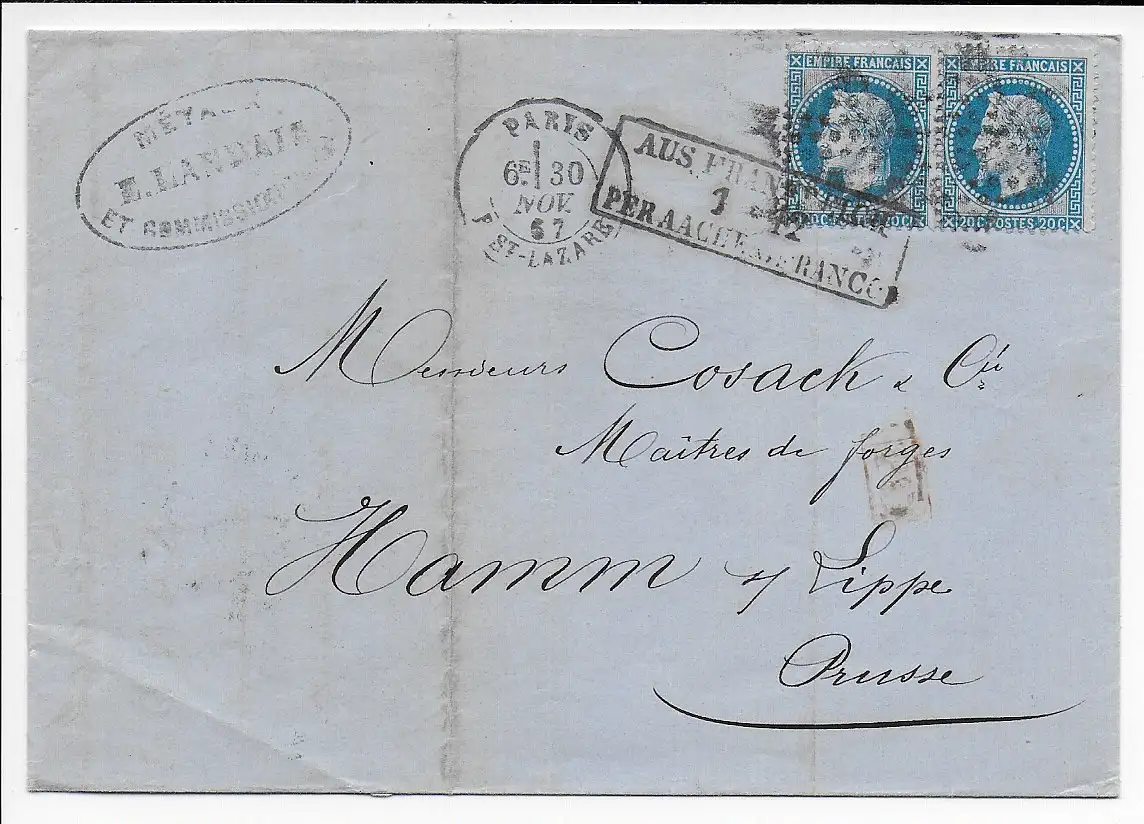 MÉTAUX
E. LANDAIS
ET COMMISSION
PARIS
6E 30
NOV.
67
ST-LAZARE
AUS FRANKREICH
1 12
PER AACHEN FRANCO
EMPIRE FRANCAIS
20C POSTES 20C
EMPIRE FRANCAIS
20C POSTES 20C
Messieurs Cosack & Cie
Maîtres de forges
Hamm s/ Lippe
Prusse